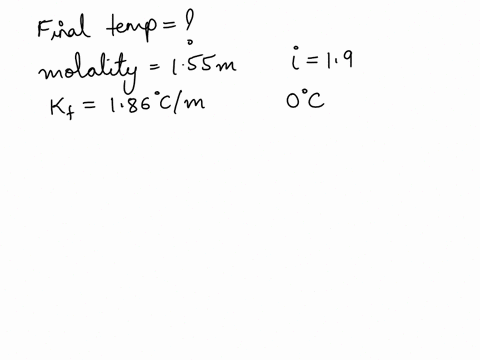 Final temp = ?
molality = 1.55m i = 1.9
Kf = 1.86°C/m 0°C